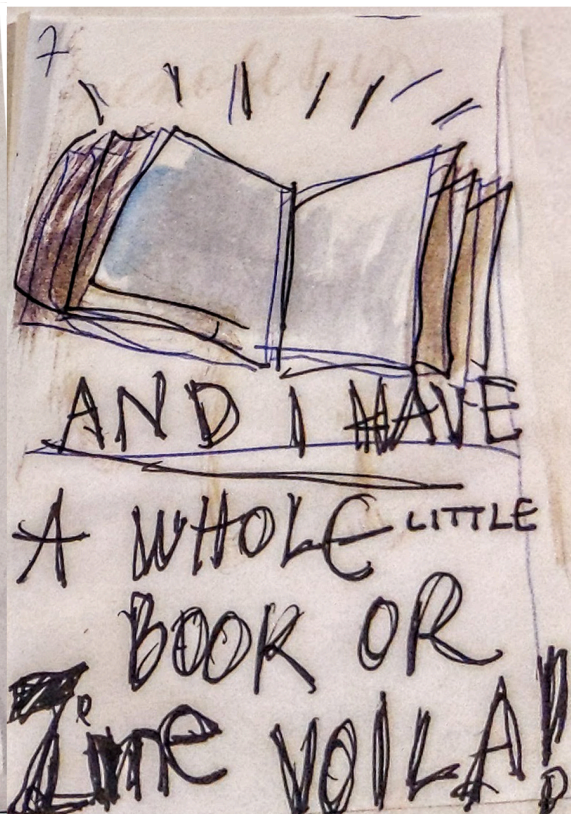 7
AND I HAVE
A WHOLE LITTLE
BOOK OR
Zine VOILA!